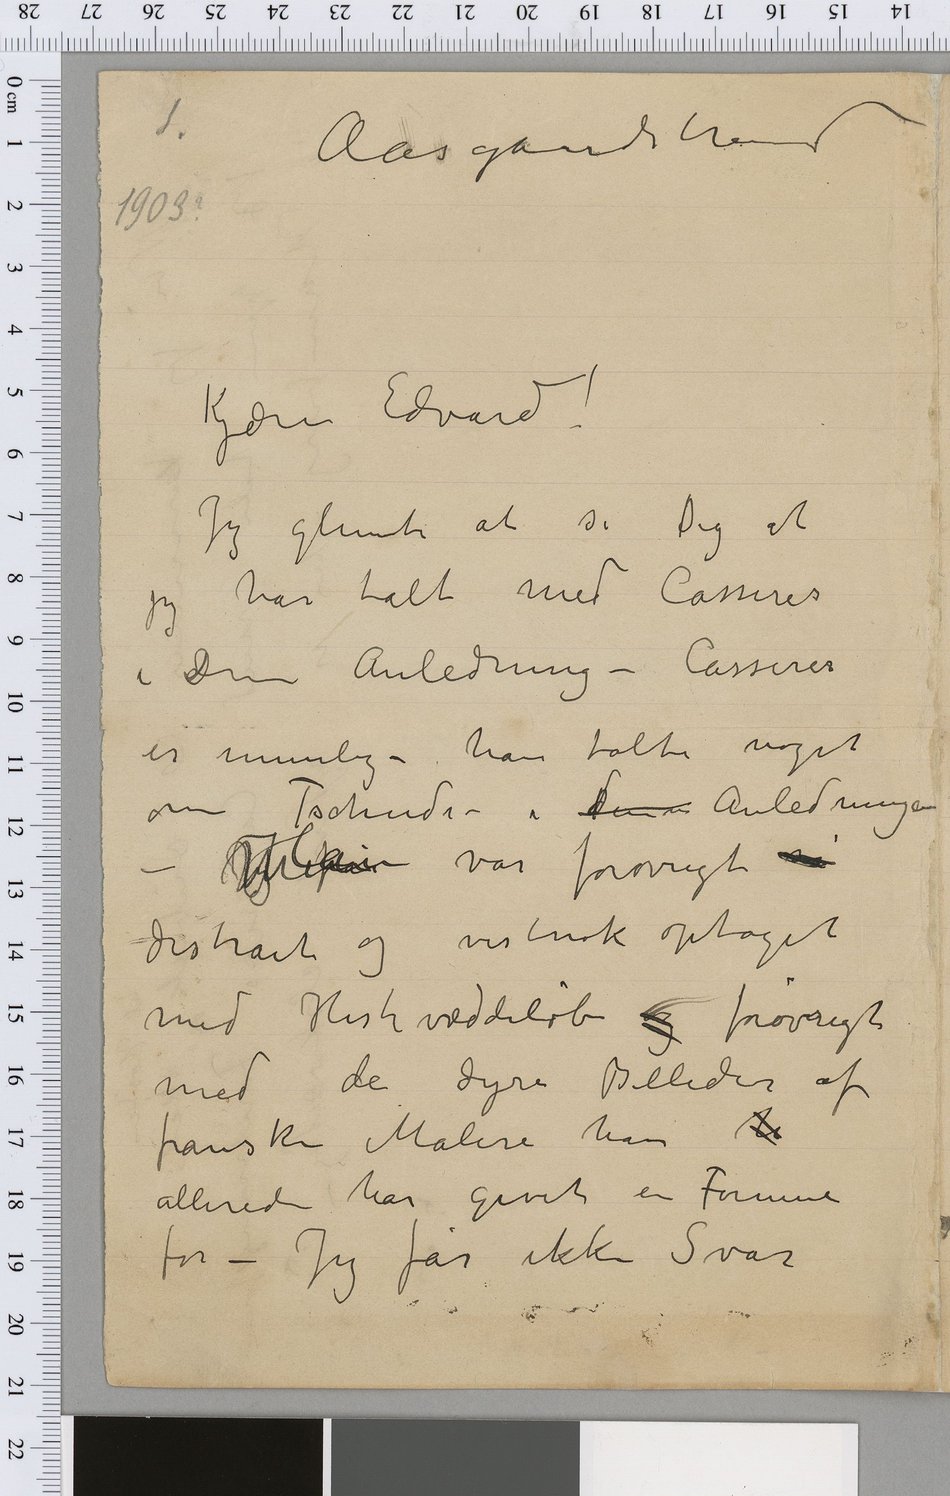 28 27 26 25 24 23 22 21 20 19 18 17 16 15 14
0 cm
1
2
3
4
5
6
7
8
9
10
11
12
13
14
15
16
17
18
19
20
21
22
1.
Aasgaardstrand
1903?
Kjære Edvard!
Jeg glemte at si Dig at
jeg har talt med Cassirer
i Din Anledning – Cassirer
er umulig – han talte noget
om Tschudi – i Anledningen
– var forøvrigt
distrait og vistnok optaget
med Hestevæddeløb og forøvrigt
med de dyre Billeder af
franske Malere han
allerede har givet en Formue
for – Jeg får ikke Svar